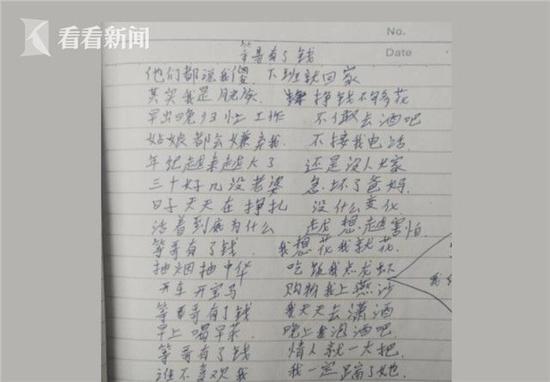 看看新闻
No.
等哥有了钱
Date
他们都说我傻. 下班就回家
其实我是月光族. 挣钱不够花
早出晚归忙工作 不敢去酒吧
姑娘都会嫌弃我. 不接我电话
年纪越来越大了 还是没
三十好几没老婆 急坏了爸妈.
日子天天在挣扎 没什么变化
活着到底为什么 越想越害怕.
等哥有了钱. 我想花我就花.
抽烟抽中华 吃饭我点龙虾
开车开宝马 购物我上燕沙
等哥有了钱 我天天去潇洒
早上喝早茶. 晚上去泡酒吧.
等哥有了钱 情人就一大把
谁不喜欢我 我一定踹了她.